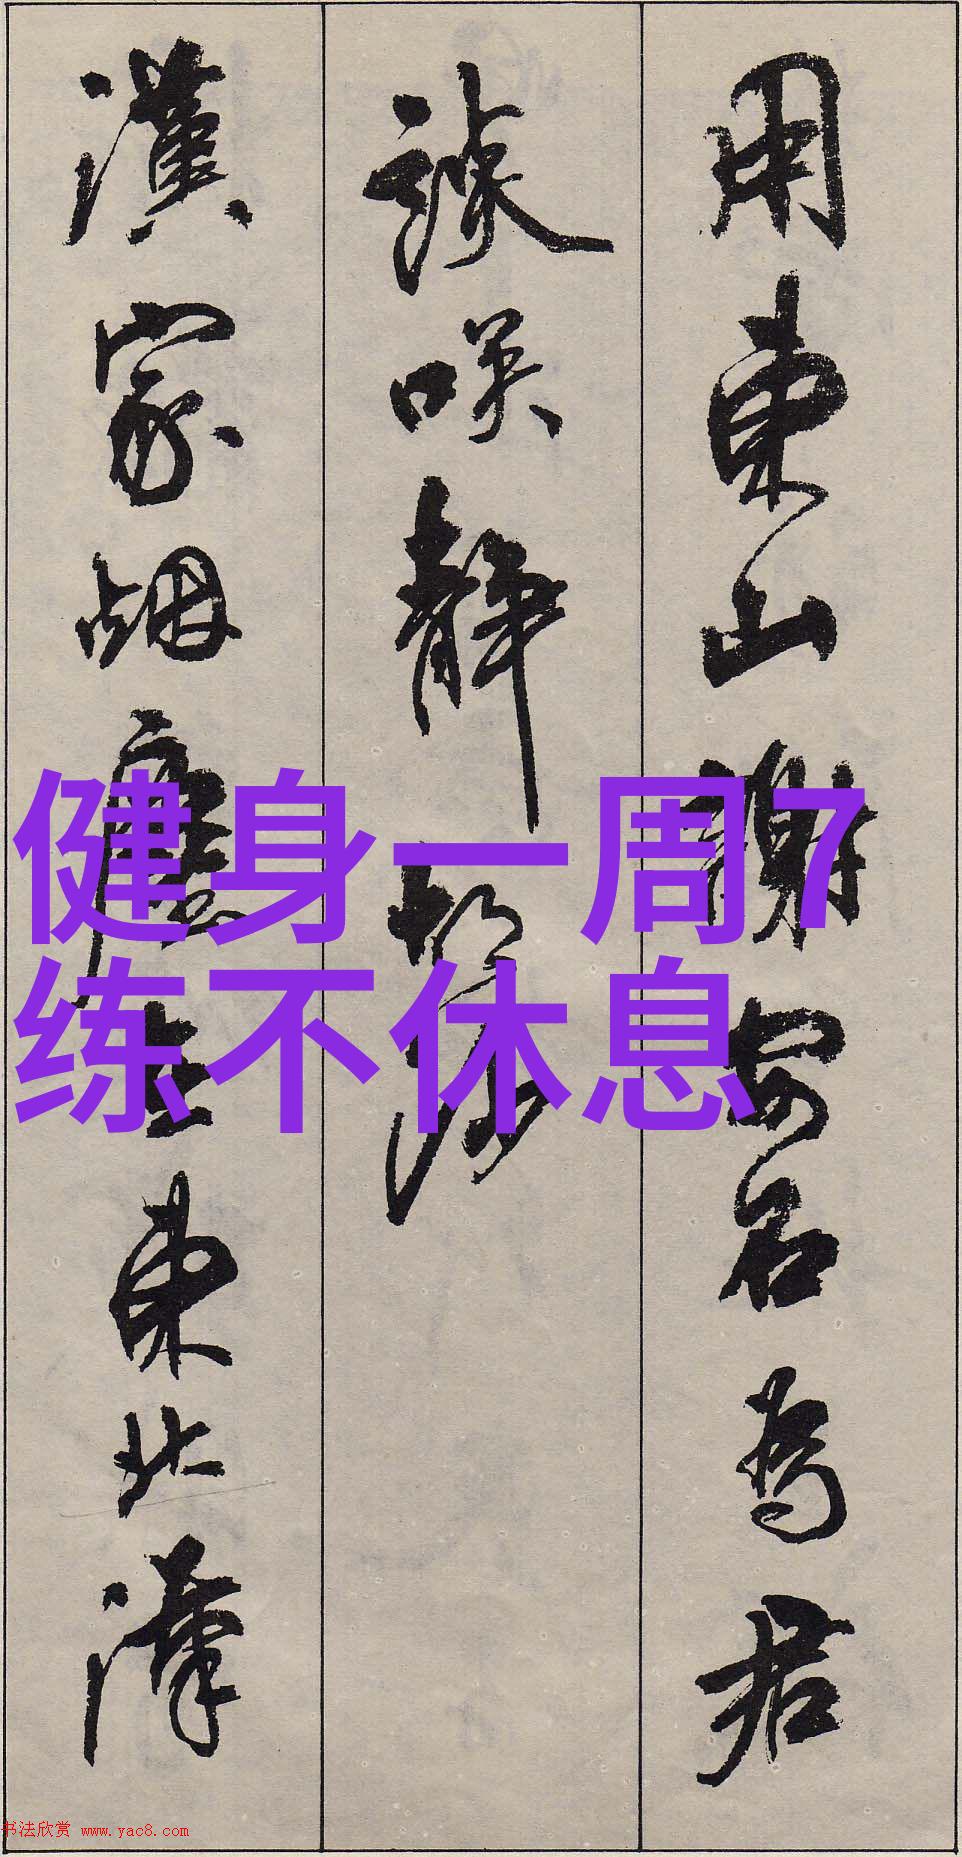 用東山謝安石為君
談咲静胡沙
漢家烟塵在東北漢
健身一周7
练不休息
书法欣赏 www.yac8.com